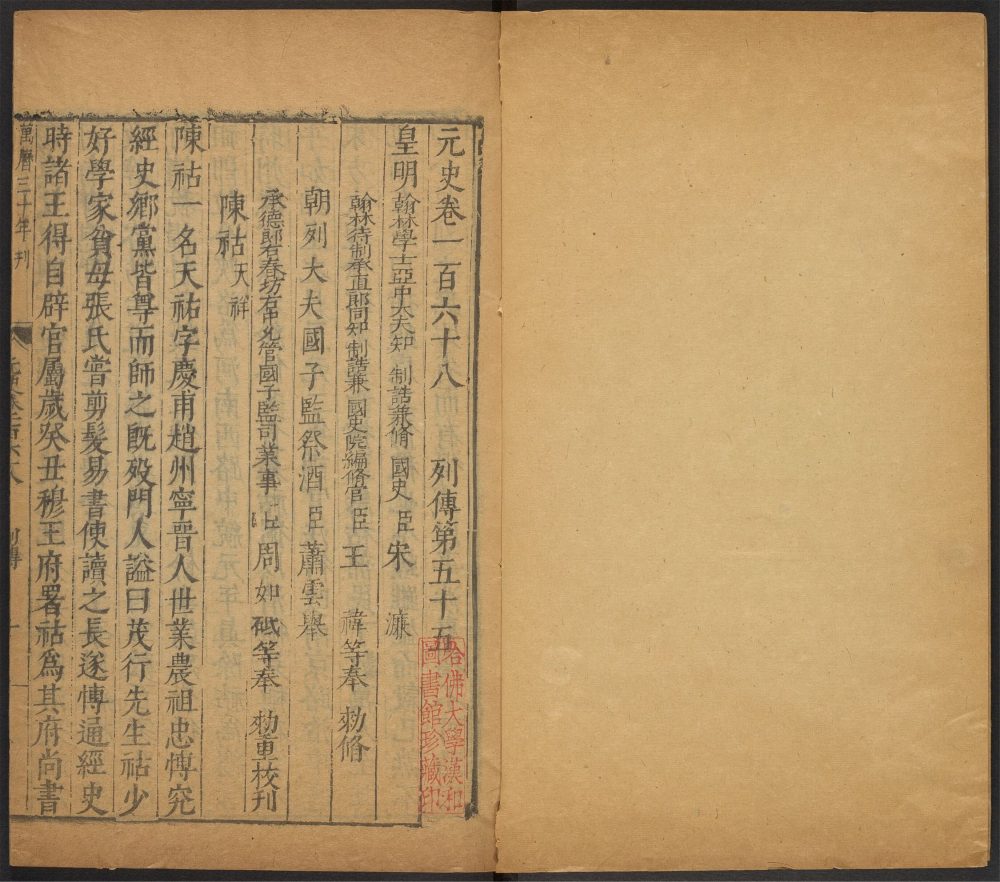 元史卷一百六十八 列傳第五十五
皇明翰林學士亞中大夫知 制誥兼脩 國史 臣 宋 濂
翰林待制承直郎同知 制誥兼 國史院編脩官 臣 王 褘等奉 勑脩
朝列大夫國子監祭酒 臣 蕭雲舉
承德郎右春坊右中允管國子監司業事 臣 周如砥等奉 勑重校刊
陳祜 天祥
陳祜一名天祐字慶甫趙州寧晉人世業農祖忠博究
經史鄉黨皆尊而師之既歿門人謚曰茂行先生祜少
好學家貧母張氏嘗剪髮易書使讀之長遂博通經史
時諸王得自辟官屬歲癸丑穆王府署祜爲其府尚書
萬曆三十年刊
元史卷一百六十八 列傳 一
哈佛大學漢和
圖書館珍藏印